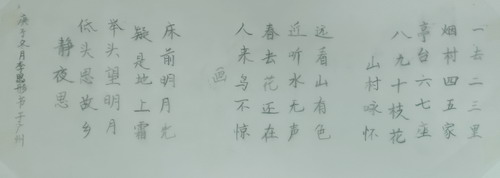 一去二三里
烟村四五家
亭台六七座
八九十枝花
山村咏怀
远看山有色
近听水无声
春去花还在
人来鸟不惊
画
床前明月光
疑是地上霜
举头望明月
低头思故乡
静夜思
庚子月李书于广州